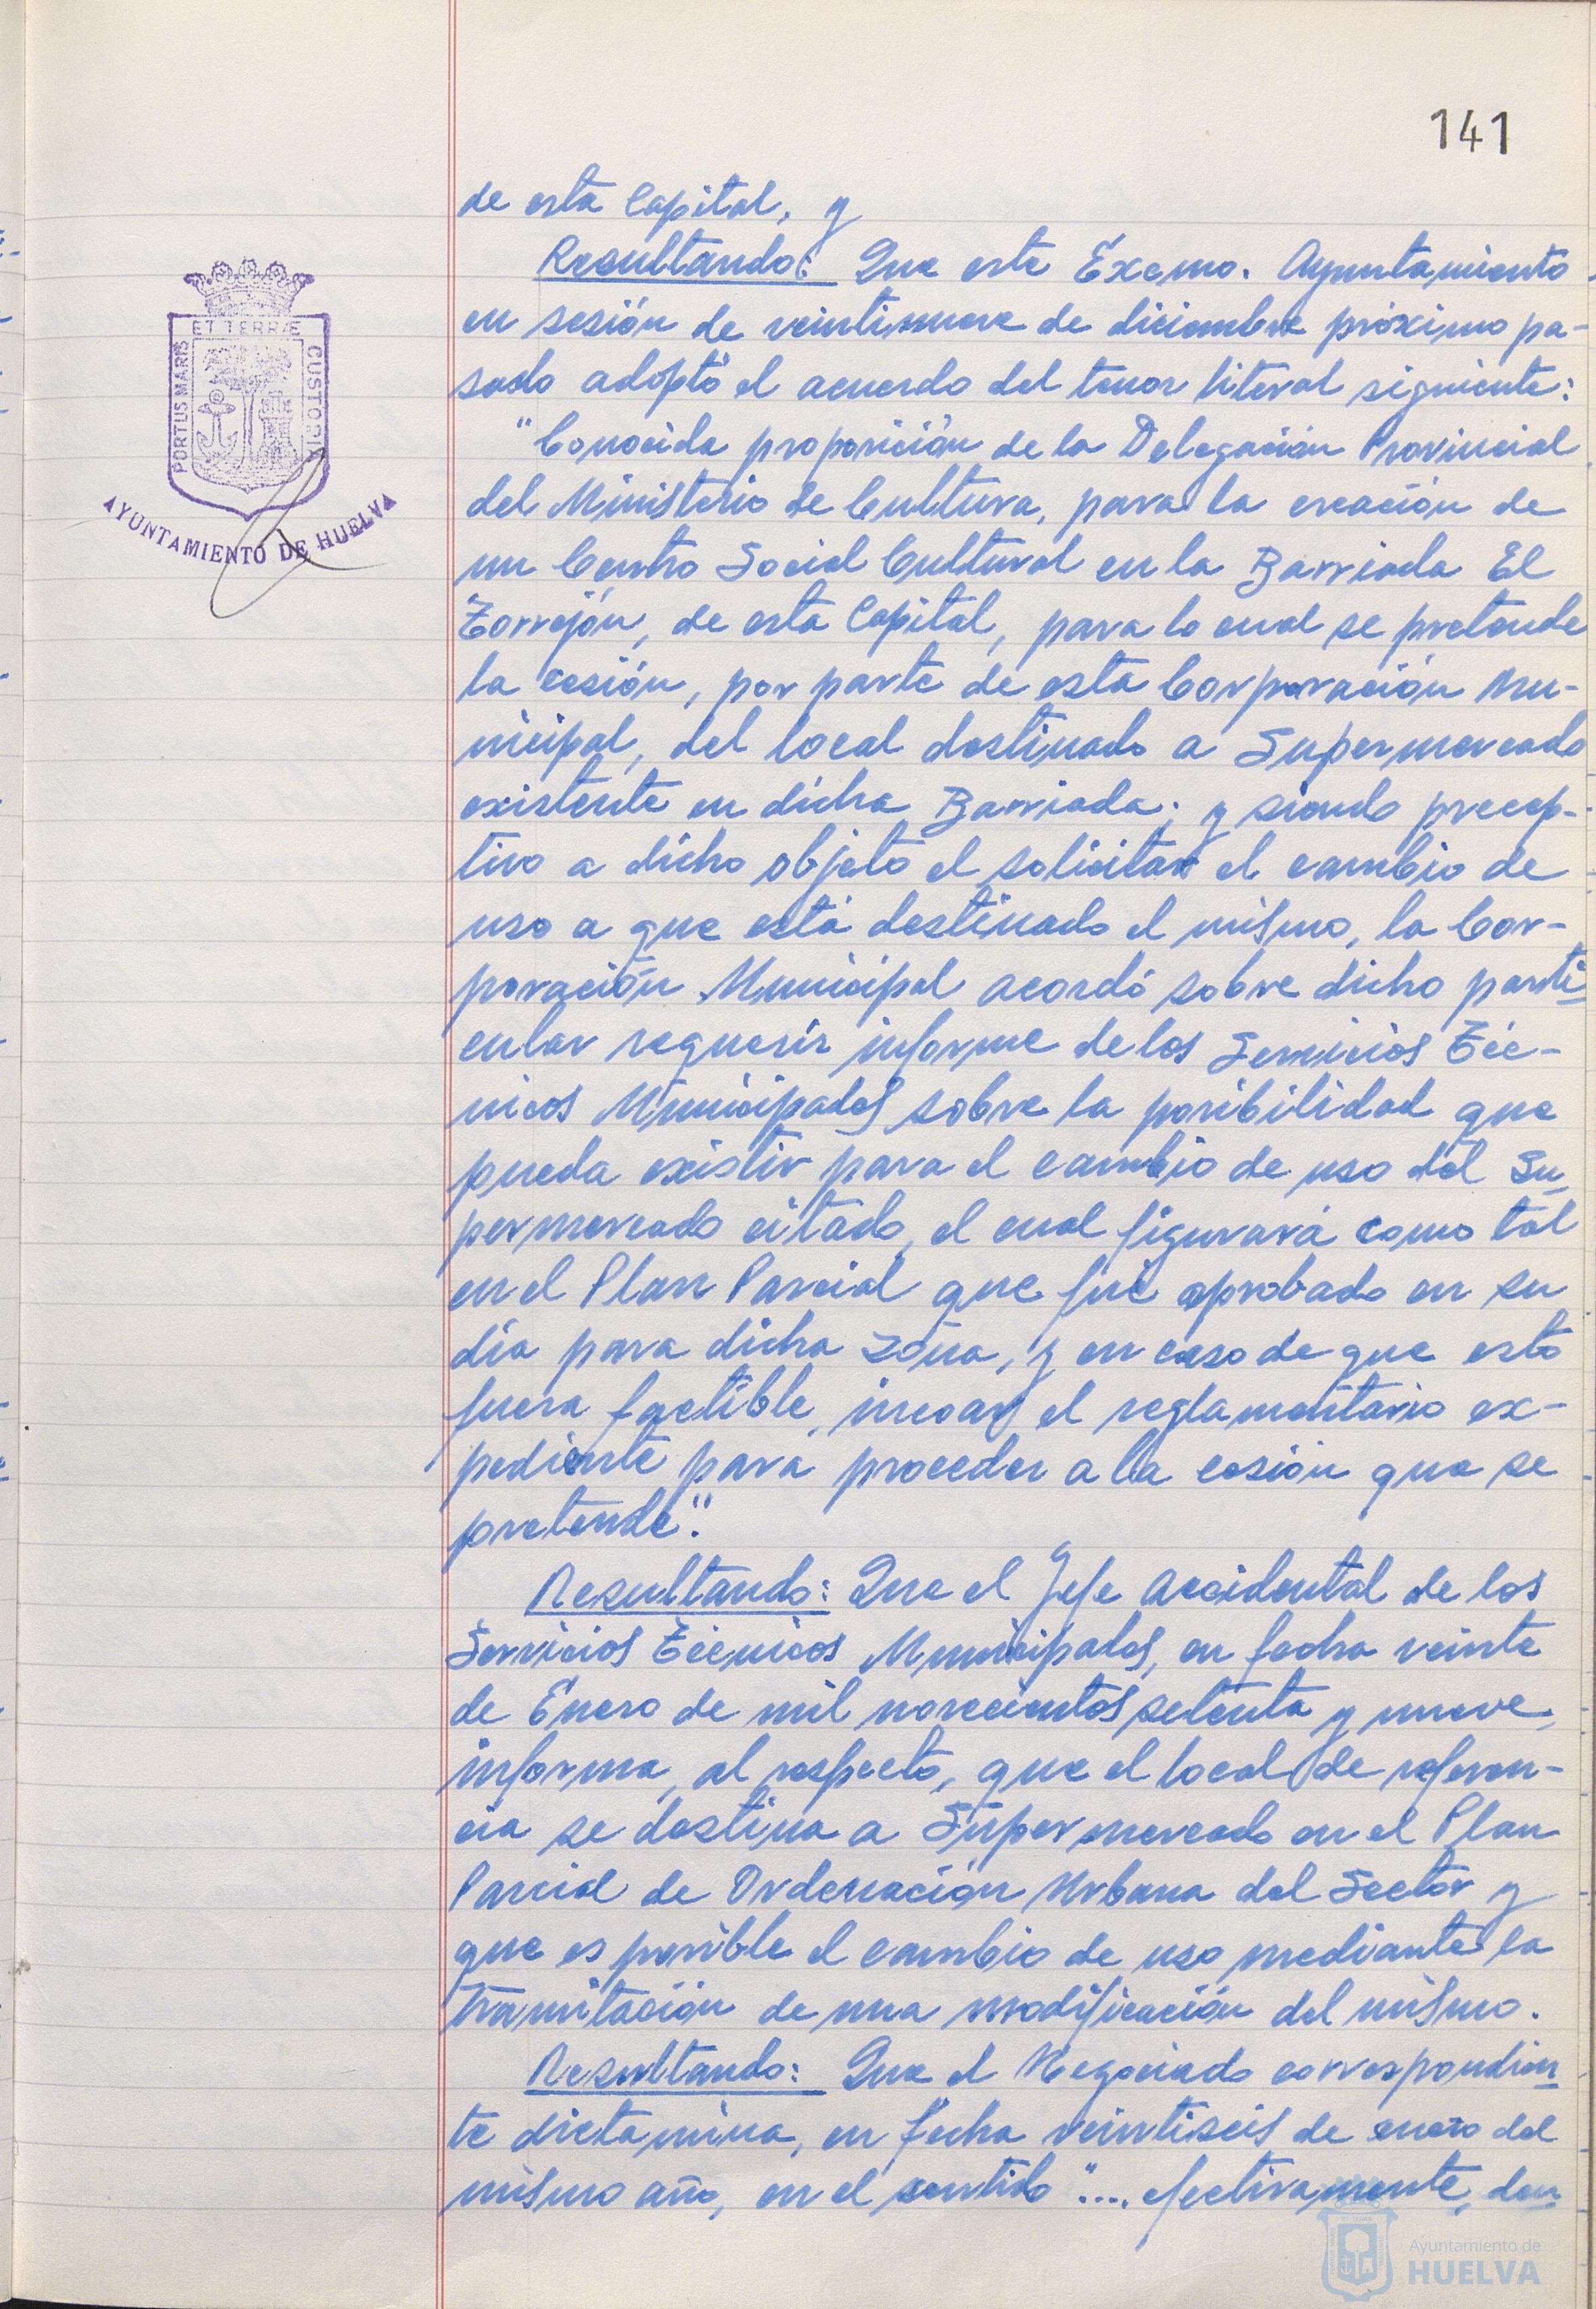 141
de esta Capital, y
Resultando: Que este Excmo. Ayuntamiento
en sesión de veintinueve de diciembre próximo pa-
sado adoptó el acuerdo del tenor literal siguiente:
"Conocida proposición de la Delegación Provincial
del Ministerio de Cultura, para la creación de
un Centro Social Cultural en la Barriada El
Torrejón, de esta Capital, para lo cual se pretende
la cesión, por parte de esta Corporación Mu-
nicipal, del local destinado a Supermercado
existente en dicha Barriada; y siendo precep-
tivo a dicho objeto el solicitar el cambio de
uso a que está destinado el mismo, la Cor-
poración Municipal acordó sobre dicho parti
cular requerir informe de los Servicios Téc-
nicos Municipales sobre la posibilidad que
pueda existir para el cambio de uso del Su
permercado citado, el cual figurará como tal
en el Plan Parcial que fué aprobado en su
día para dicha zona, y en caso de que esto
fuera factible, incoar el reglamentario ex-
pediente para proceder a la cesión que se
pretende".
Resultando: Que el Jefe Accidental de los
Servicios Técnicos Municipales, en fecha veinte
de Enero de mil novecientos setenta y nueve,
informa, al respecto, que el local de referen-
cia se destina a Supermercado en el Plan
Parcial de Ordenación Urbana del Sector y
que es posible el cambio de uso mediante la
tramitación de una modificación del mismo.
Resultando: Que el Negociado correspondien
te dictamina, en fecha veintiseis de enero del
mismo año, en el sentido ".... efectivamente, den
PORTUS MARIS
ET TERRÆ
CUSTODIA
AYUNTAMIENTO DE HUELVA
Ayuntamiento de
HUELVA